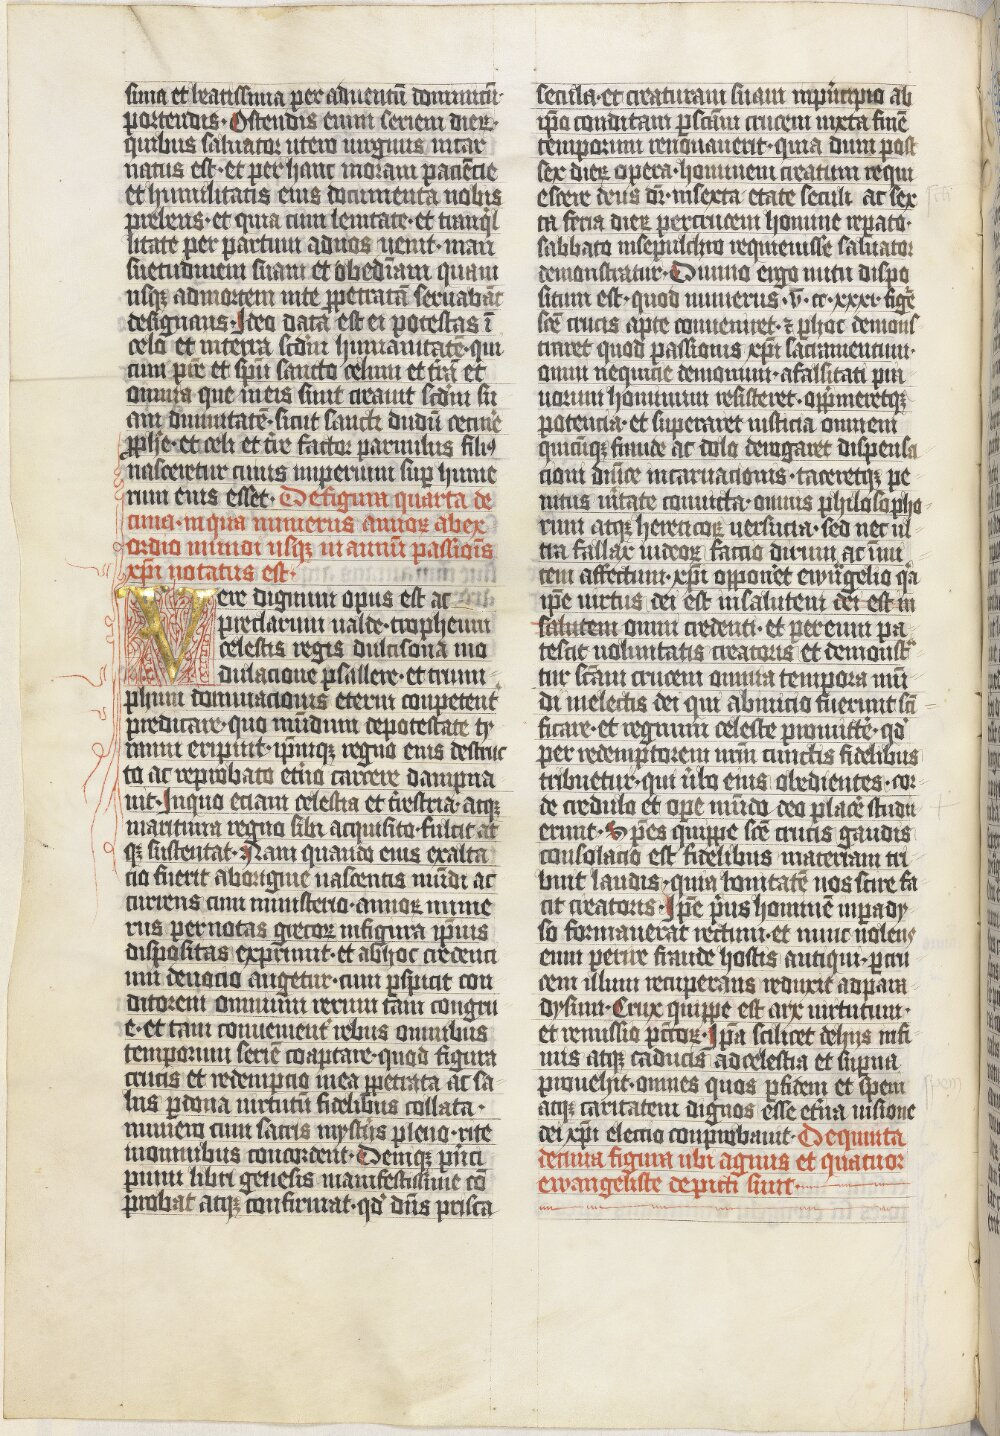 sima et beatissima per aduentū dominicū·
portendis· Ostendis enim seriem dieꝝ·
quibus saluator utero uirginis incar
natus est· et per hanc moram paciēcie
et humilitatis eius documenta nobis
prebens· et quia cum lenitate· et tranq̇l
litate per partum ad nos uenit· man
suetudinem suam et obediam quam
usqꝫ ad mortem inte ꝑpetratā seruabāt
designans· Ideo data est ei potestas ī
celo et in terra scd̄m humanitatē· qui
cum pr̄e et spū sancto celum et trā et
omnia que in eis sunt creauit scd̄m su
am diuinitatē· sicut sancti dudū cecine
ꝓphē· et celi et t̄re factor paruulus filiꝰ
nasceretur cuius imperium suꝑ hume
rum eius esset· De figura quarta de
cima· in qua numerus annoꝝ ab ex
ordio mundi usqꝫ in annū passiōis
xp̄i notatus est·
Vere dignum opus est ac
preclarum ualde· tropheum
celestis regis dulcisona mo
dulacione psallere· et trium
phum dominacionis eterni conpetent̄
predicare· quo mūdum de potestate ty
ranni eripuit· ip̄mqꝫ regno eius destruc
to ac reprobato et̄no carcere dampna
uit· In quo eciam celestia et t̄restria· atqꝫ
maritima regno sibi acquisito· fulcit at
qꝫ sustentat· Nam quando eius exalta
cio fuerit ab origine nascentis mūdi ac
curiens cum ministerio· annoꝝ nume
rus per notas grecoꝝ in figura ip̄uis
dispositas exprimit· et ab hoc credenci
um deuocio augetur· cum ꝑspicit con
ditorem omnium rerum tam congru
e· et tam conuenient̄ rebus omnibus
temporum seriē coaptare· quod figura
crucis et redempcio in ea ꝑpetrata ac sa
lus ꝑ dona uirtutū fidelibus collata·
numero cum sacris mysterijs pleno· rite
in omnibus concordent· Deniqꝫ prīci
pium libri genesis manifestissime cō
probat atqꝫ confirmat· qd̄ dn̄s prisca
secula· et creaturam suam in prīcipio ab
ip̄o conditam ꝑ scām crucem iuxta finē
temporum renouauerit· quia dum post
sex dieꝝ opera· hominem creatum requi
escere deus dr̄· in sexta etate seculi ac sex
ta feria dieꝝ per crucem homine reꝑato·
sabbato in sepulchro requieuisse saluator
demonstratur· Diuino ergo nutu dispo
situm est· quod numerus· v̄· cc· xxxi· figē
scē crucis apte conueniret· ⁊ ꝑ hoc demons
traret quod passionis xp̄i sacramentum·
omni nequicie demonum· a falsitati pra
uorum hominum resisteret· opp̄meretqꝫ
potencia· et superaret iusticia omnem
quicūqꝫ fraude ac dolo derogaret dispensa
cioni diuīe incarnacionis· taceretqꝫ pe
nitus ūitate conuicta· omnis philosopho
rum atqꝫ hereticoꝝ uersucia· sed nec ul
tra fallax iudeoꝝ factio dirum ac inu
tem affectum· xp̄i opponet ewāgelio q̄a
ip̄e uirtus dei est in salutem dei est in
salutem omni credenti· et per eum pa
tescit uoluntatis creatoris et demonst̄
tur scām crucem omnia tempora mū
di in electis dei qui ab inicio fuerunt scī
ficare· et regnum celeste promitt̄e· qd̄
per redemptorem nr̄m cunctis fidelibus
tribuetur· qui ūbo eius obedientes· cor
de credulo et oꝑe mūdo deo placē studu
erunt· Spes quippe scē crucis gaudis
consolacio est fidelibus materiam tri
buit laudis· quia bonitatē nos scire fa
cit creatoris· Ip̄e pius hominē in pady
so formauerat rectum· et nunc nolens
eum perire fraude hostis antiqui· ꝑ cru
cem illum recuperans reduxit ad para
dysum· Crux quippe est arx uirtutum·
et remissio pctōꝝ· Ip̄a scilicet de hijs infi
mis atqꝫ caducis ad celestia et suꝑna
prouehit· omnes quos ꝑ fidem et spem
atqꝫ caritatem dignos esse et̄na uisione
dei xp̄i electio conprobauit· De quinta
decima figura ubi agnus et quatuor
ewangeliste depicti sunt·